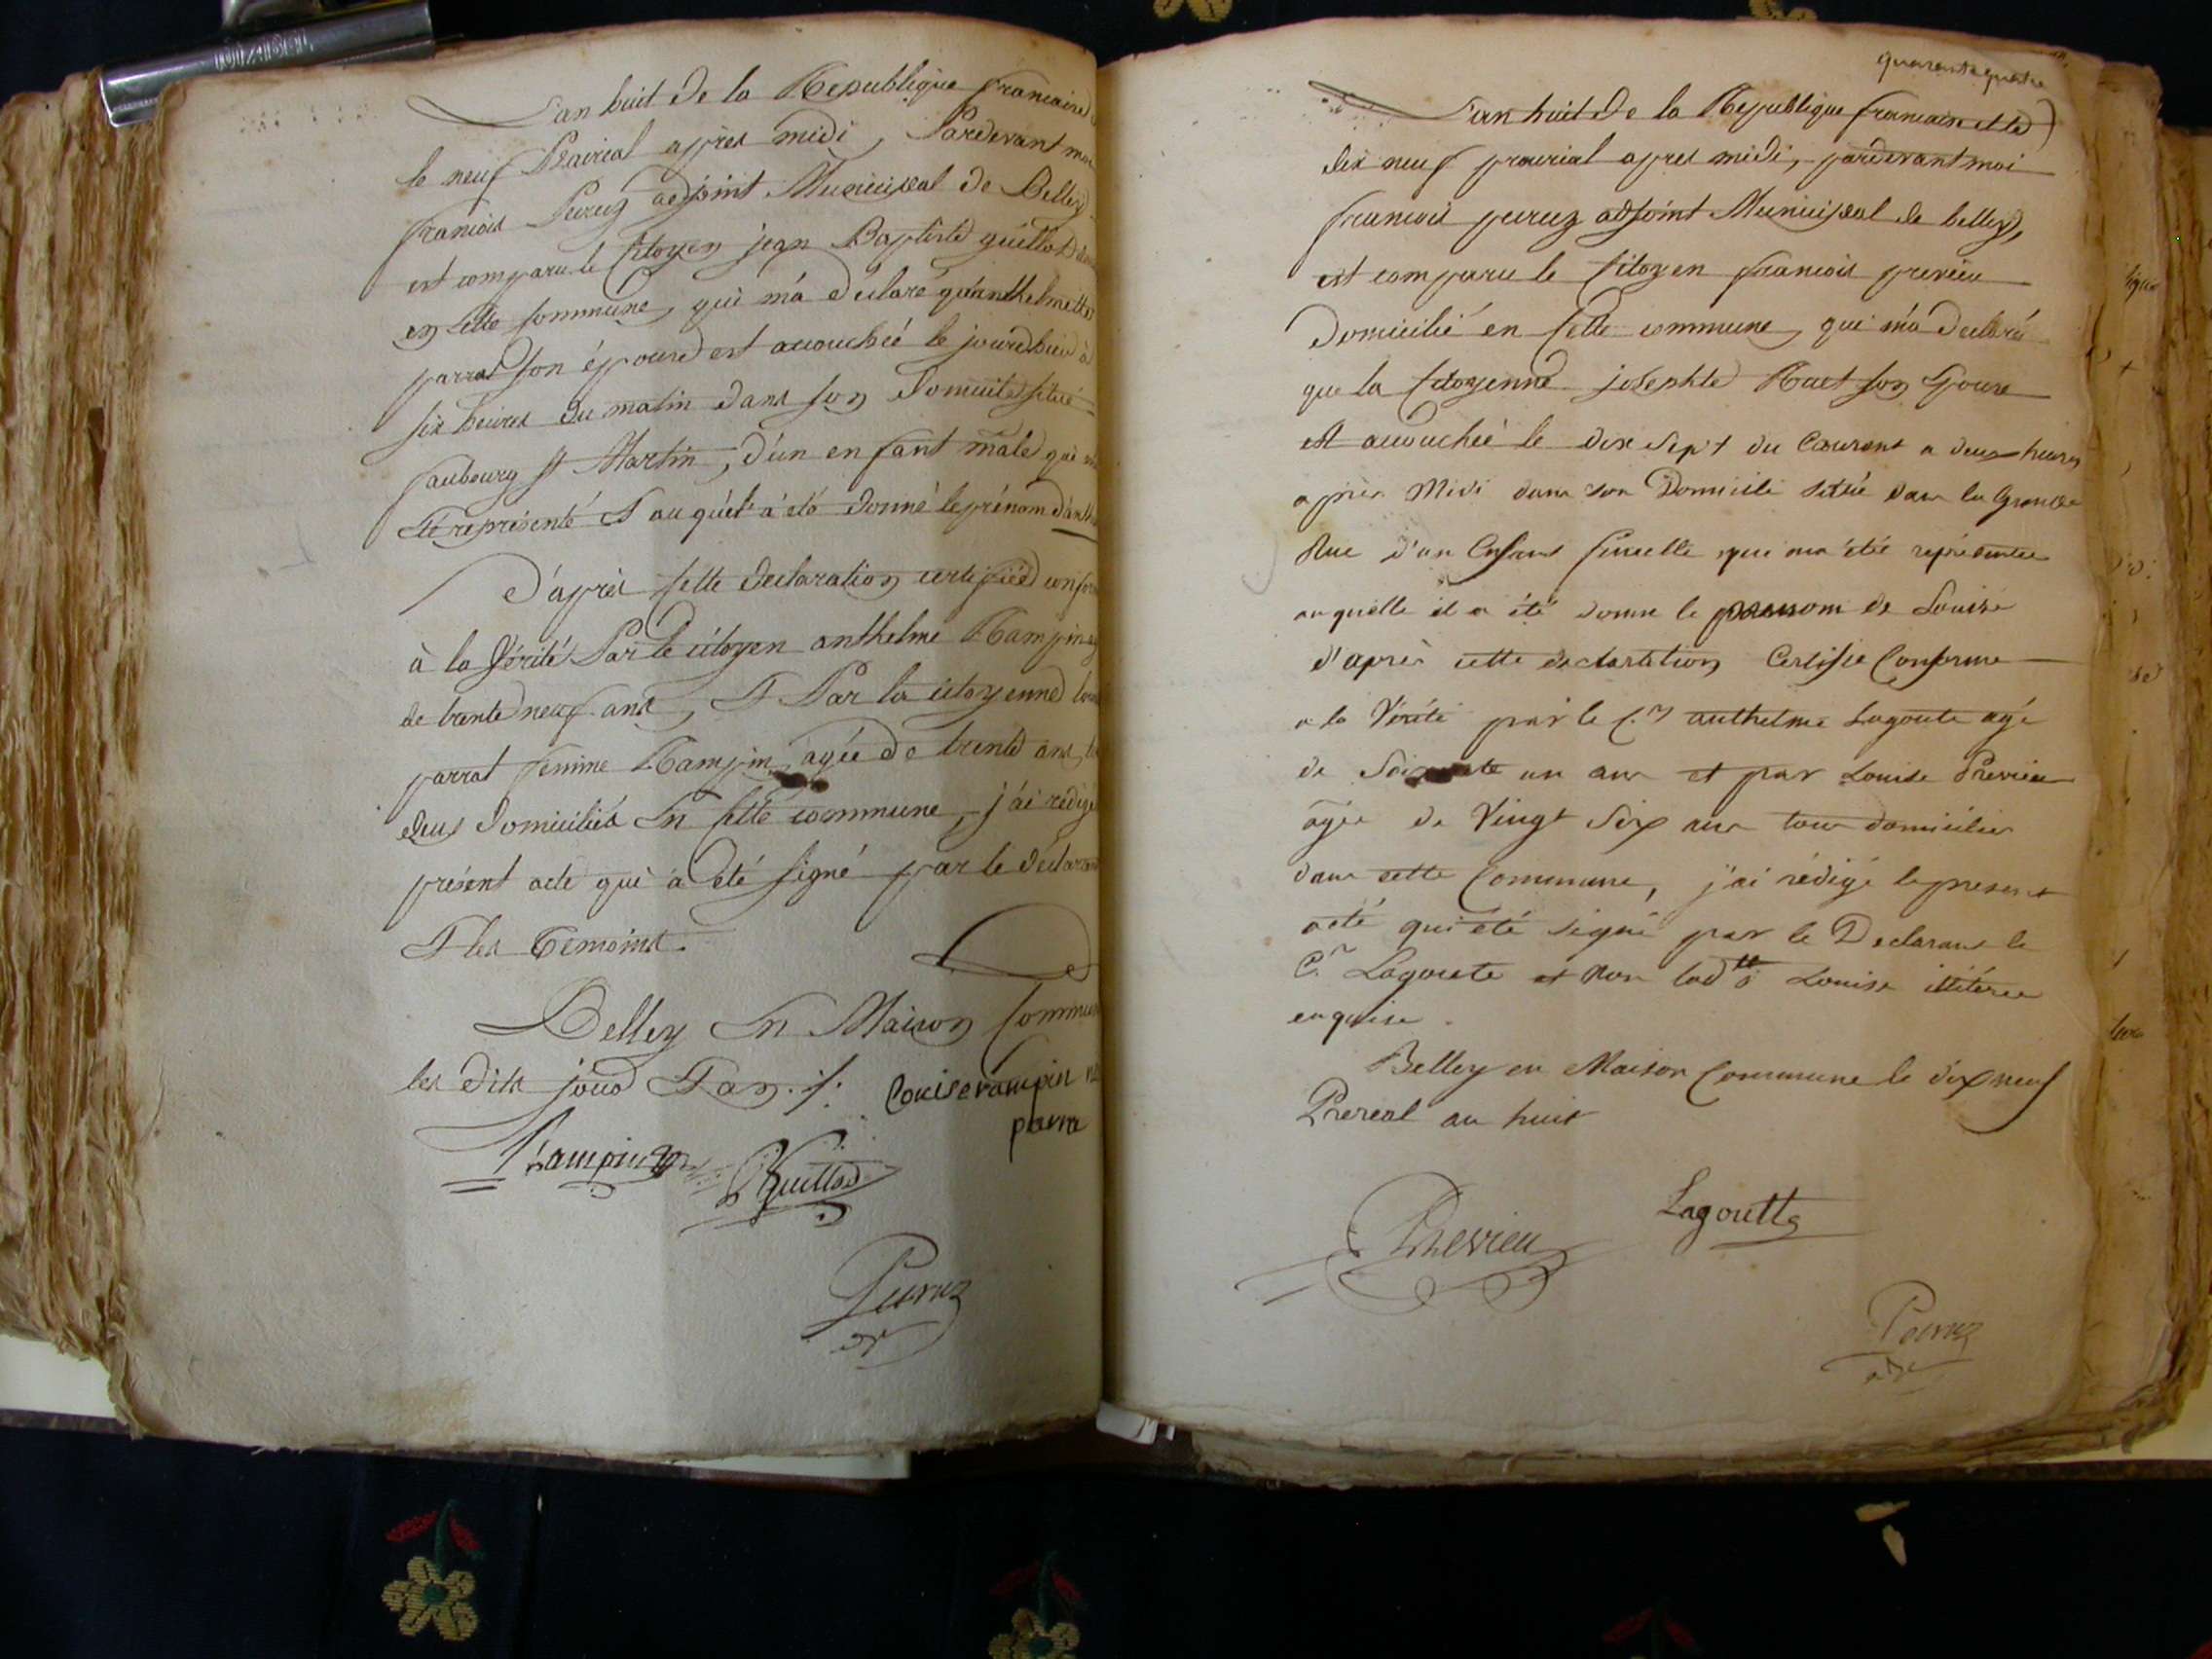 L'an huit de la Republique francaise
le neuf Prairial après midi, Pardevant moi
francois Peruz adjoint Municipal de Belley
est comparu le Citoyen jean Baptiste guillot
en Cette Commune, qui m'a déclaré qu'anthelmette
parrat son épouse est acouchée le jourd'hui à
six heures du matin dans son Domicile situé
faubourg St Martin, d'un enfant mâle qui
été représenté Et auquel a été donné le prénom
D'après Cette déclaration certifiée
à la Vérité Par le citoyen anthelme Rampin
de trente neuf ans, Et Par la citoyenne
parrat femme Rampin, agée de trente ans,
deux Domiciliés En Cette commune, j'ai rédigé
présent acte qui a été signé par le déclarant
Et les Temoins.
Belley En Maison Commune
les dits jour Et an ./.
Louise rampin
parra
Rampin
Guillot
Peruz
quarante quatre
L'an huit de la Republique francaise et le
dix neuf prairial apres midi, pardevant moi
francois peruz adjoint Municipal de belley,
est comparu le Citoyen francois previeu
Domicilié en Cette commune, qui m'a declaré
que la Citoyenne josephte Ruet son Epouse
est acouchée le dix sept du Courent a deux heures
après Midi dans son Domicile situé dans la Grande
Rue d'un Enfant fémelle qui m'a été représentée
auquelle il a été donné le prenom de Louise
d'après cette declaration Certifié Conforme
a la Vérité par le C.n anthelme Lagoute agé
de Soixante un ans et par Louise Previeu
agée de Vingt Six ans tous domiciliés
dans cette Commune, j'ai rédigé le present
acte qui été signé par le Declarant le
C.n Lagoute et non lad.te Louise illiterée
enquise.
Belley en Maison Commune le dix neuf
Prereal an huit
Previeu
Lagoutte
Peruz